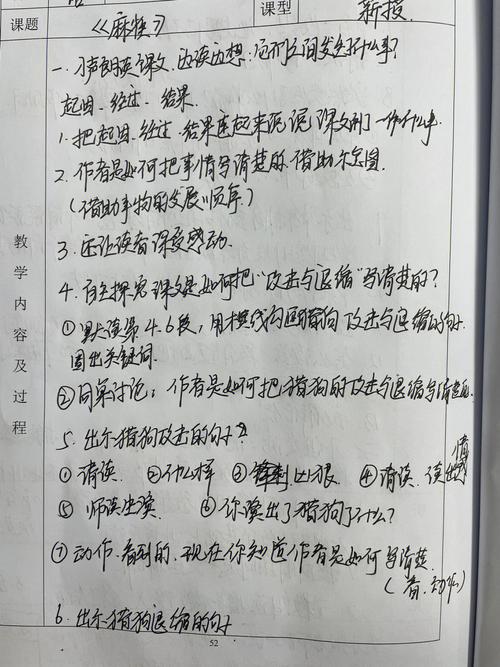 课型
新授
课题
《麻雀》
教学内容及过程
一、小声朗读课文,边读边想:它们之间发生什么事?
起因、经过、结果.
1.把起因、经过、结果连起来说说课文写了一件什么事.
2.作者是如何把事情写清楚的.借助示意图.
(借助事物的发展顺序)
3.还让读者深受感动.
4.自主探究课文是如何把“攻击与退缩”写清楚的?
①默读第4.6段,用横线勾画猎狗攻击与退缩的句子.
圈出关键词.
②同桌讨论:作者是如何把猎狗的攻击与退缩写清楚的
5.出示猎狗攻击的句子?
①请读. ②什么样 ③ 凶狠 ④请读,读出情感
⑤师读生演 ⑥你演出了猎狗了什么?
⑦动作、看到的.现在你知道作者是如何写清楚
(看、动作)
6.出示猎狗退缩的句子
52